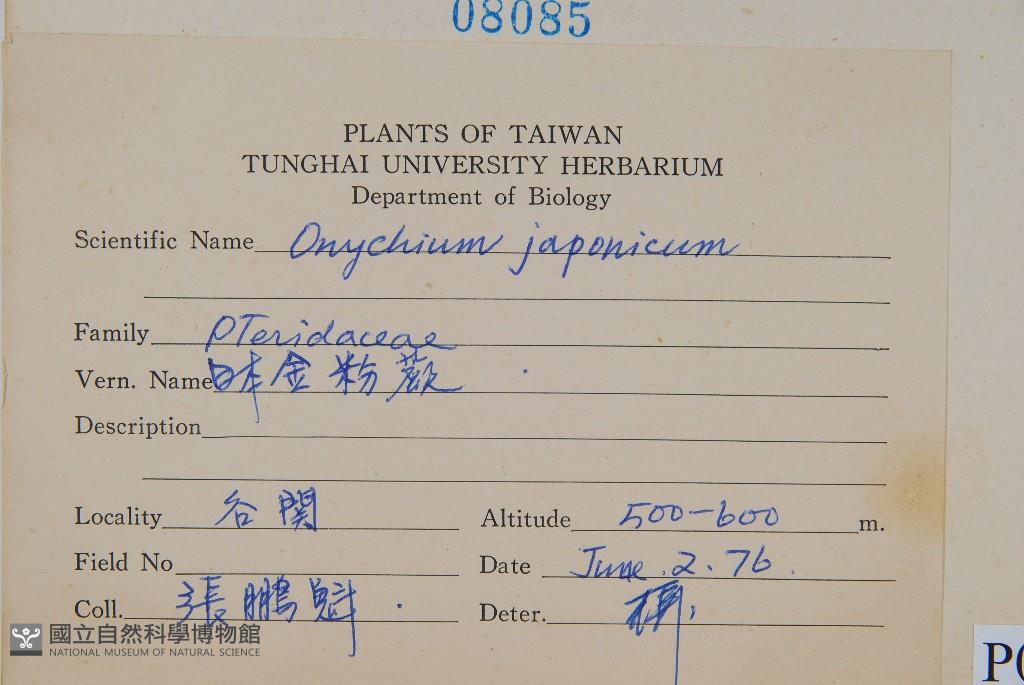 08085
PLANTS OF TAIWAN
TUNGHAI UNIVERSITY HERBARIUM
Department of Biology
Scientific Name Onychium japonicum
Family Pteridaceae
Vern. Name 日本金粉蕨
Description
Locality 谷関 Altitude 500-600 m.
Field No Date June.2.76.
Coll. 張鵬魁 Deter.
國立自然科學博物館
NATIONAL MUSEUM OF NATURAL SCIENCE
P0